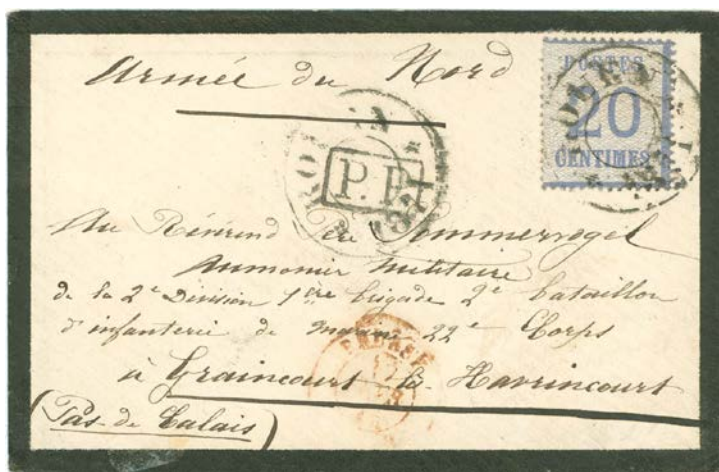 Armée du Nord
POSTES
20
CENTIMES
ROUEN
P.P.
1871
Au Révérend Père Sommervogel
Aumonier Militaire
de la 2e Division 1ère brigade 2e bataillon
d'infanterie de marine 22e Corps
à Graincourt ls Havrincourt
(Pas-de Calais)
PRUSSE